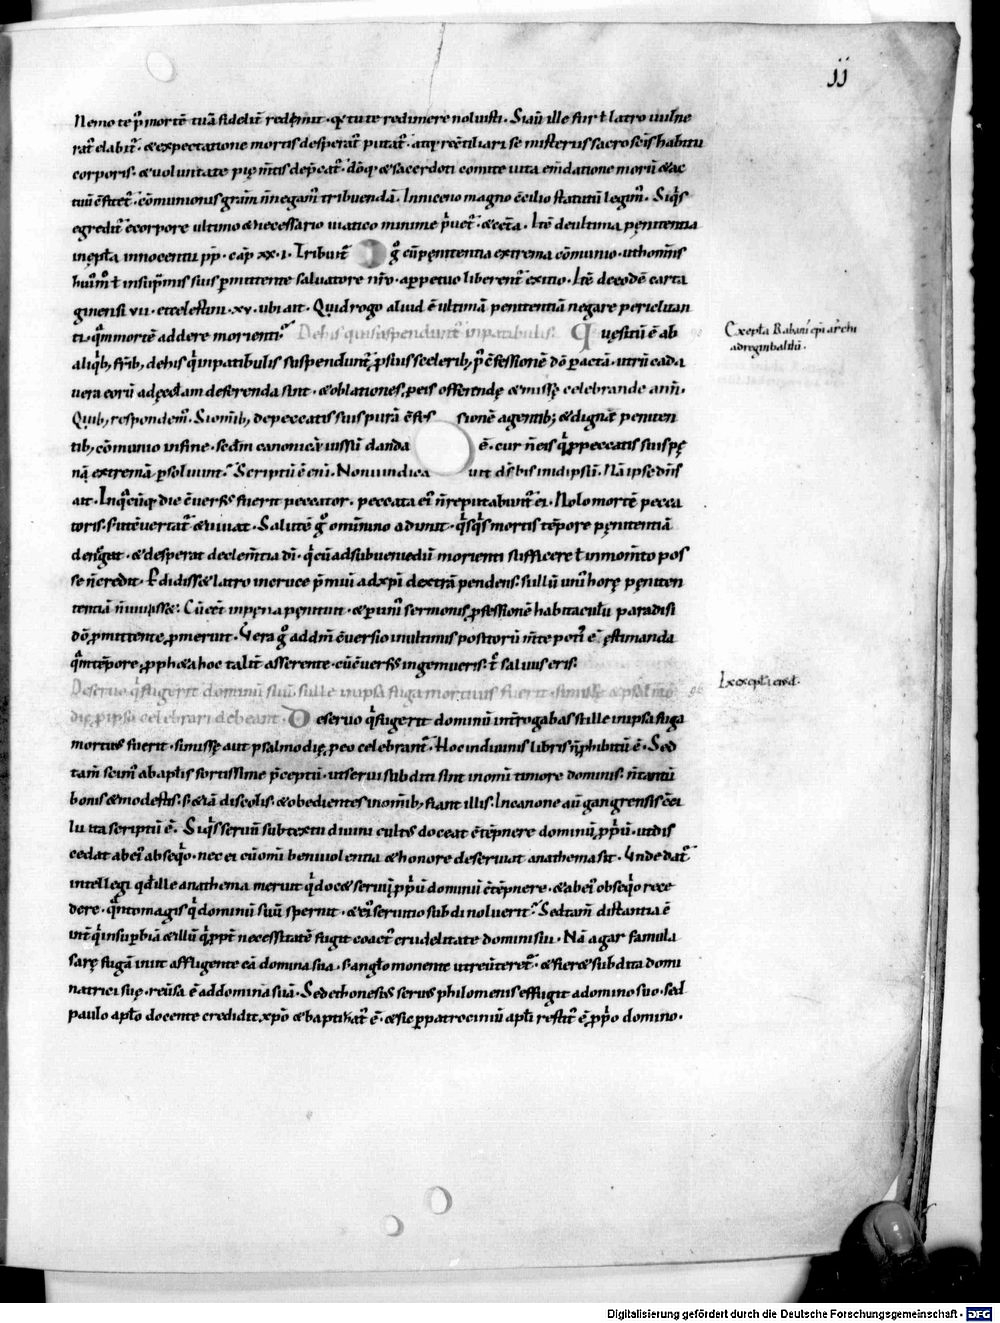 jj
Nemo te p̄ mortē tuā fidelit̄ redemit · q̄ tu te redimere noluisti · Si aut̄ ille fur ł latro uulne
rat᷑ elabit᷑ · & expectatione mortis desperat᷑ putat᷑ · atq; rec̄ciliari se misteriis sacrosc̄is habitu
corporis · & uoluntate pię m̄tis dep̄cat᷑ · dōq; & sacerdoti comite uita em̄datione morū & ac
tuū
cōmunionis gr̄am n̄ negam᷑ tribuendā · In niceno magno c̄cilio statutū legim᷑ · Siq̄s
egredit᷑ e corpore ultimo & necessario uiatico minime p̄uet᷑ · & cet̄a · Itē de ultima pęnitentia
innocentii pp̄ · cap̄ xx · i · Tribuit᷑
g̊ cū pęnitentia extrema cōmunio · ut hominis
huī᷑ ł in sup̄mis suis p̄mittente saluatore nr̄o · a ppetuo liberent᷑ exitio · Itē
carta
ginensi vii · et celestini · xv · ubi ait · Quid rogo aliud ē ultimā penitentiā negare periclitan
ti · q̄m mortē addere morienti · De his qui suspendunt᷑ in patibulis · Quęsitū ē ab
Excepta Rabani ep̄i ad
ad reginbaldū ·
aliq̄b; fr̄ib; de his q̄ in patibulis suspendunt᷑ p suis scelerib; p̄ c̄fessionē dō pactā · utrū cada
uera eorū ad ęcclam deferenda sint · & oblationes p eis offerendę & missę celebrande an n̄ ·
Quib; respondem᷑ · Si omib; de peccatis suis purā c̄fes sionē agentib; & dignā penten
tib; cōmunio in fine · sedm canonicū iussū danda ē · cur n̄ eis q̄ p peccatis suis pę
nā extremā psoluunt · Scriptū ē enī · Non iudica uit ds̄ bis in id ipsū · Nā ipse dn̄s
ait · In q̄cūq; die c̄uersus fuerit peccator · peccata ei᷑ n̄ reputabunt᷑ ei · Nolo mortē pecca
toris · s; ut c̄uertat᷑ & uiuat · Salutē g̊ omnino adimit · q̄sq̄s mortis tēpore pęnitentiā
deneḡat · & desperat de clem̄tia dī · q̄ eū ad subueniendū morienti sufficere ł in momēto pos
se n̄ credit · Pdidiss& latro in cruce p̄miū ad xp̄i dextrā pendens · si illū uni᷑ horę pęniten
tentiā n̄ iuuiss& · Cū eēt in pęna pęnituit · & p uni᷑ sermonis pfessionē habitaculū paradisi
dō pmittente pmeruit · Vera g̊ ad dm̄ c̄uersio in ultimis positorū m̄te poti᷑ ē ęstimanda
q̄m tēpore pph&a hoc talit᷑ asserente · cū c̄uersus ingemueris · t̄ saluus eris ·
De seruo q̄ fugerit dominū suū · si ille in ipsa fuga mortuus fuerit · si missę & psalmo
Ex excepta eiusd ·
dię p ipso celebrari debeant · De seruo q̄ fugerit dominū int̄rogabas si ille in ipsa fuga
mortuus fuerit · si missę aut psalmodię p eo celebrant᷑ · Hoc in diuinis libris n̄ phibitū ē · Sed
tam̄ scim᷑ ab apl̄is fortissime p̄ceptū · ut serui subditi sint in omī timore dominis · n̄ tantū
bonis & modestis · s; & iā discolis · & obedientes in omib; fiant illis · In canone aū gangrensis c̄ci
lii ita scriptū ē · Siq̄s seruū sub textu diuini cultus doceat c̄tēpnere dominū p̄piū · ut dis
cedat ab ei᷑ obseq̄o · nec ei cū omī beniuolentia & honore deseruiat anathema sit · Unde dat᷑
intellegi qđ ille anathema meruit q̄ doc& seruū p̄piū dominū c̄tēpnere · & ab ei᷑ obseq̄o rece
dere · q̄nto magis q̄ dominū suū spernit · & ei᷑ seruitio subdi noluerit · Sed tam̄ distantia ē
int᷑ q̄ in supbiā & illū q̄ ppt᷑ necessitatē fugit coact᷑ crudelitate domini sui · Nā agar famula
sarę fugā iniit affligente eā domina sua · s; angl̄o monente ut reūteret᷑ · & fier& subdita domi
natrici suę · reūsa ē ad dominā suā · Sed et honesimus seruus philomenis effugit a domino suo · sed
paulo apl̄o docente credidit xp̄o & baptizat᷑ ē · & sic p patrociniū apl̄i restit᷑ ē p̄pio domino ·
Digitalisierung gefördert durch die Deutsche Forschungsgemeinschaft · DFG